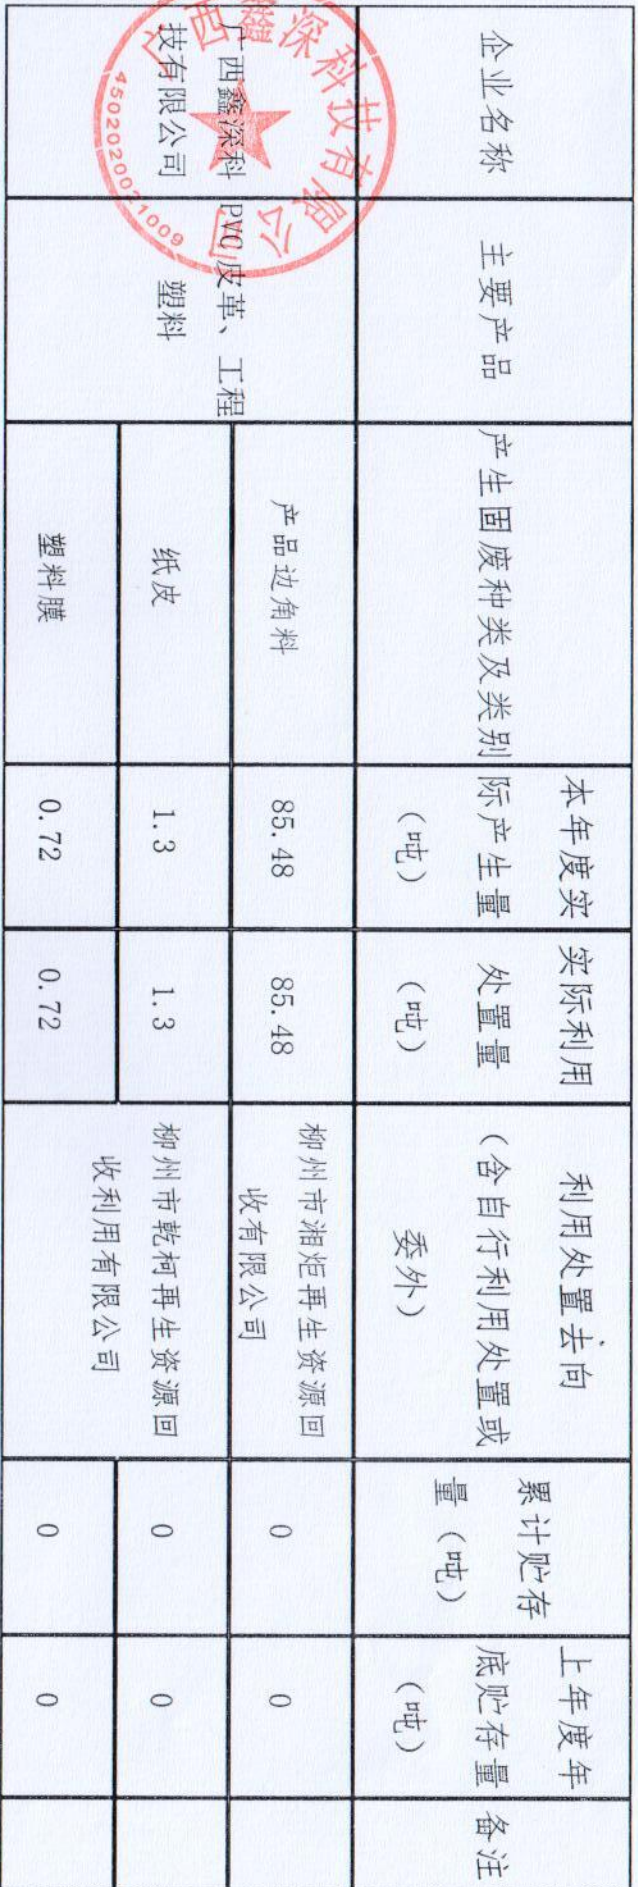 企业名称
主要产品
产生固废种类及类别
本年度实
际产生量
（吨）
实际利用
处置量
（吨）
利用处置去向
（含自行利用处置或
委外）
累计贮存
量（吨）
上年度年
底贮存量
（吨）
备注
广西鑫深科
技有限公司
PVC皮革、工程
塑料
产品边角料
85.48
85.48
柳州市湘炬再生资源回
收有限公司
0
0
纸皮
1.3
1.3
柳州市乾柯再生资源回
收利用有限公司
0
0
塑料膜
0.72
0.72
0
0
广西鑫深科技有限公司
4502020021009